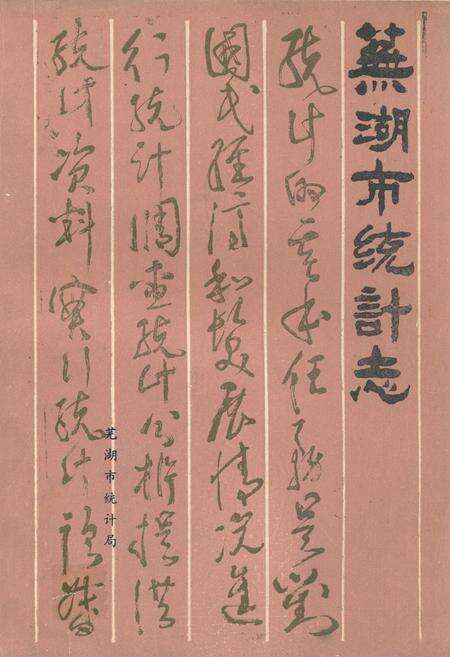 蕪湖市统計志
统计的基本任務是對
國民經济和社会發展情况進
行统計調查统计分析提供
统计资料實行统计监督
芜湖市统计局